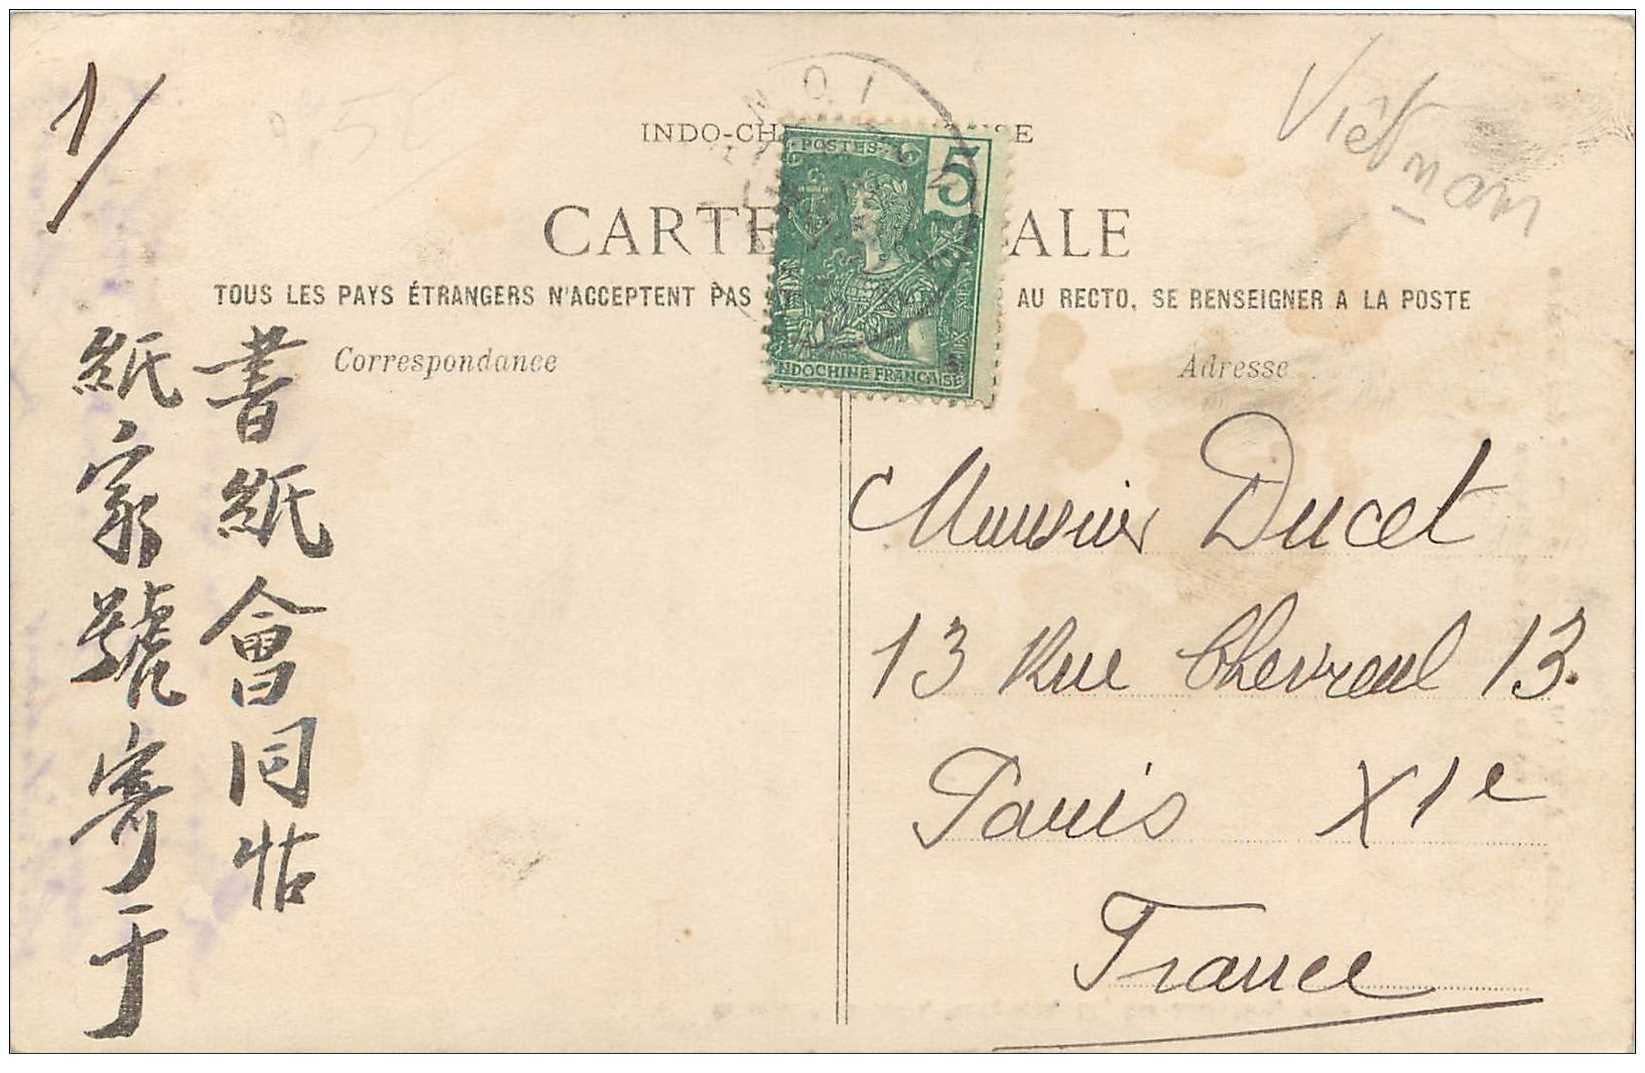 1/
Việt nam
INDO-CH
SE
CARTE
ALE
TOUS LES PAYS ÉTRANGERS N'ACCEPTENT PAS
AU RECTO, SE RENSEIGNER A LA POSTE
POSTES
5
INDOCHINE FRANÇAISE
NOI
Correspondance
Adresse
書紙會同帖
紙家號寄于
Monsieur Ducet
13 Rue Chevreul 13.
Paris XIe
France